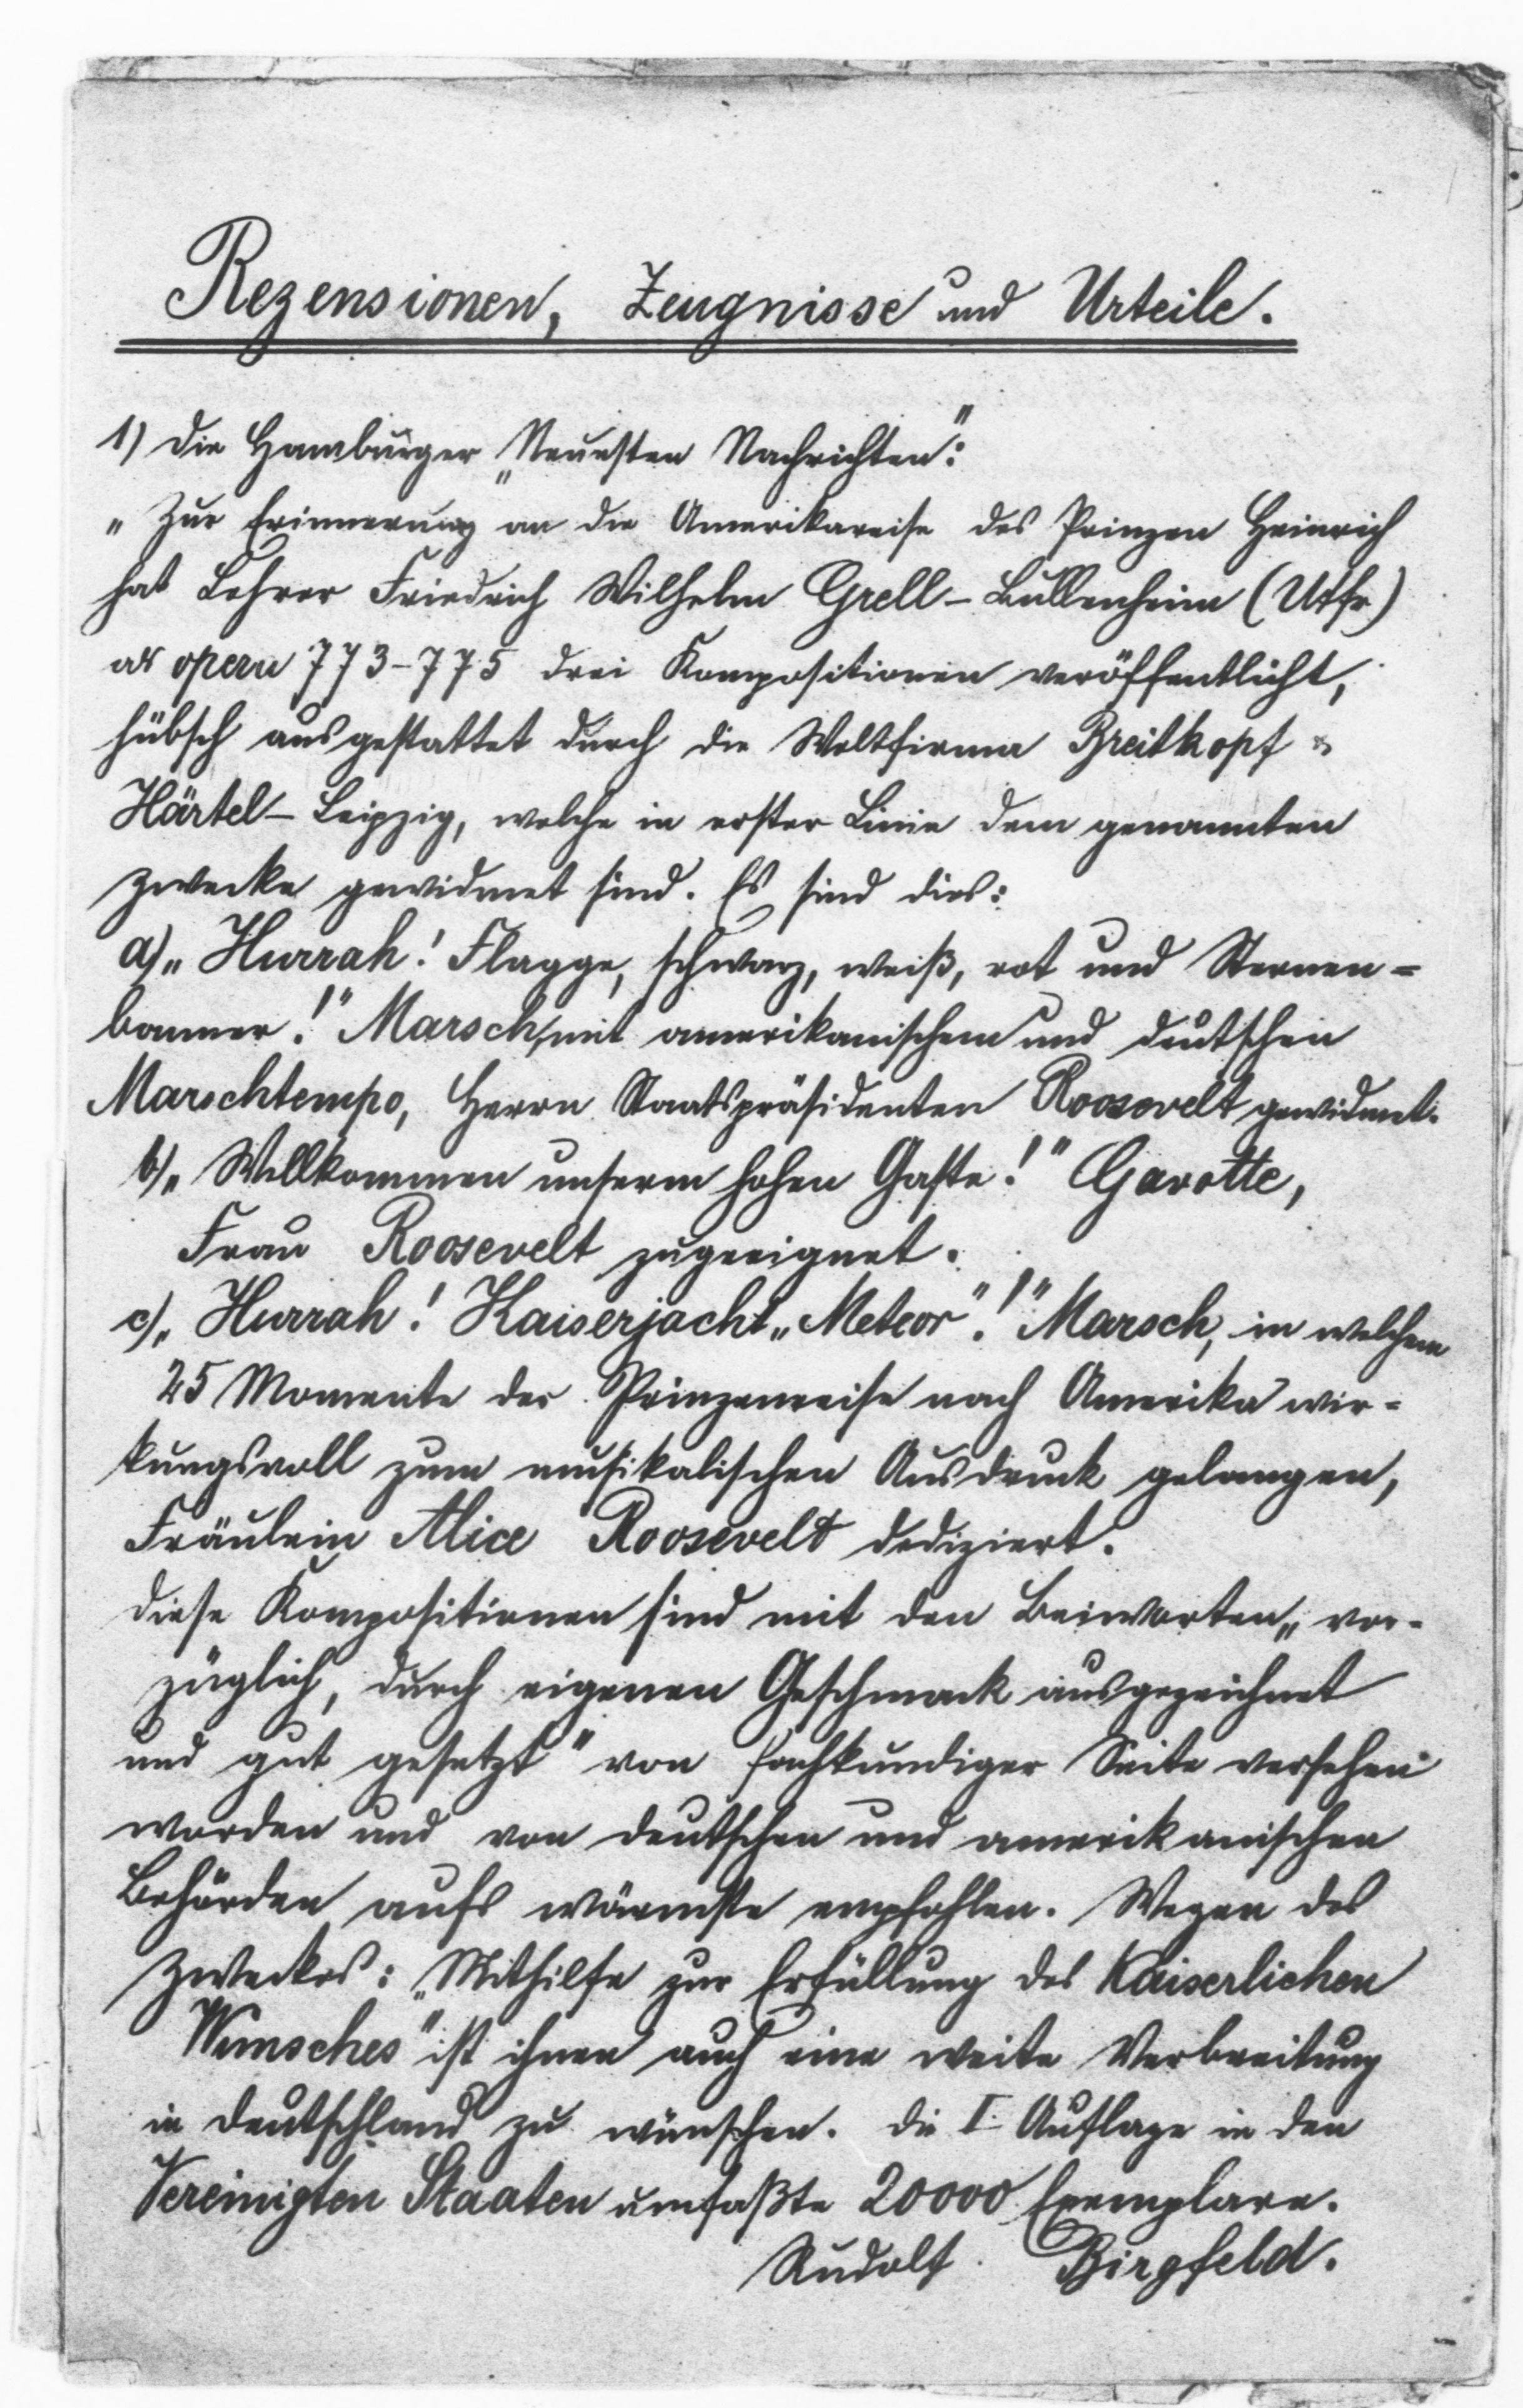 Rezensionen, Zeugnisse und Urteile.
1) Die Hamburger „Neuesten Nachrichten“:
„Zur Erinnerung an die Amerikareise des Prinzen Heinrich
hat Lehrer Friedrich Wilhelm Grell - Bullenheim (Utfr)
als opera 773-775 drei Kompositionen veröffentlicht,
hübsch ausgestattet durch die Weltfirma Breitkopf &
Härtel - Leipzig, welche in erster Linie dem genannten
Zwecke gewidmet sind. Es sind dies:
a) „Hurrah! Flagge, schwarz, weiß, rot und Sternen=
banner!“ Marsch, mit amerikanischem und deutschen
Marschtempo, Herrn Staatspräsidenten Roosevelt gewidmet.
b) „Willkommen unserm hohen Gaste!“ Gavotte,
Frau Roosevelt zugeeignet.
c) „Hurrah! Kaiserjacht „Meteor“!“ Marsch, in welchem
25 Momente der Prinzenreise nach Amerika wir=
kungsvoll zum musikalischen Ausdruck gelangen,
Fräulein Alice Roosevelt dediziert.
Diese Kompositionen sind mit den Beiworten „vor-
züglich, durch eigenen Geschmack ausgezeichnet
und gut gesetzt“ von fachkundiger Seite versehen
worden und von deutschen und amerikanischen
Behörden aufs wärmste empfohlen. Wegen des
Zweckes: „Mithilfe zur Erfüllung des Kaiserlichen
Wunsches“ ist ihnen auch eine weite Verbreitung
in Deutschland zu wünschen. Die I. Auflage in den
Vereinigten Staaten umfaßte 20000 Exemplare.
Rudolf Birgfeld.